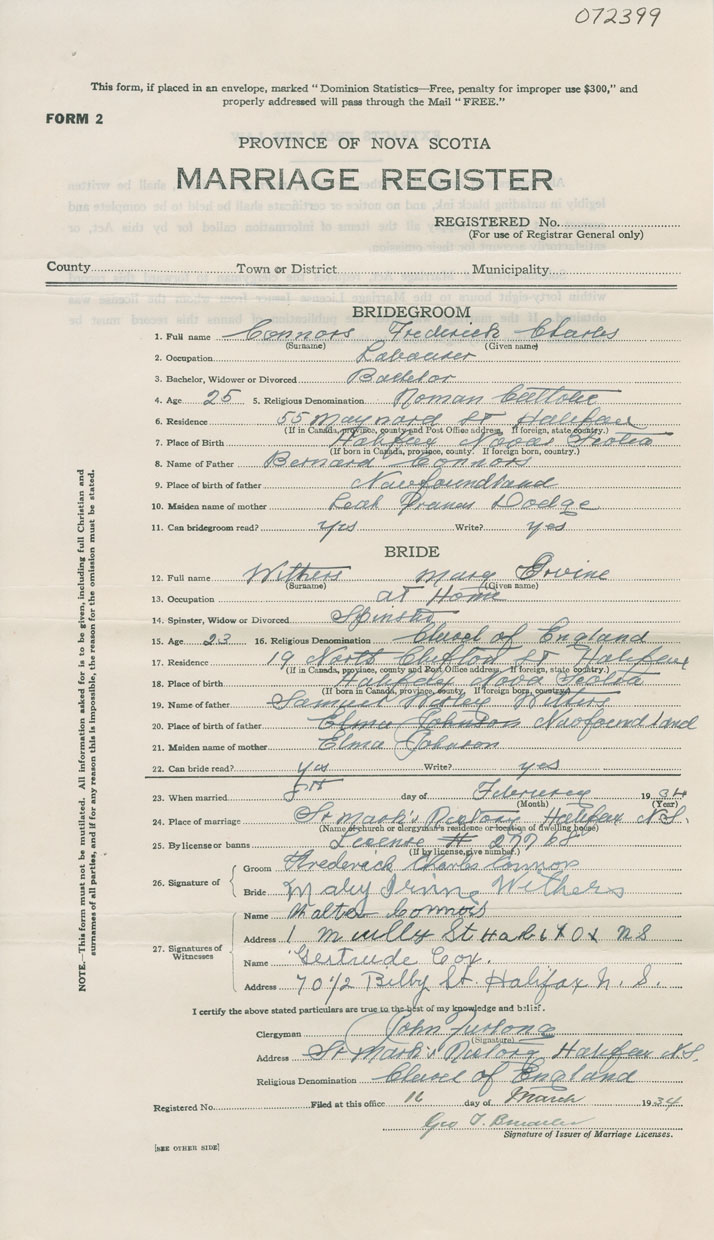 072399
This form, if placed in an envelope, marked "Dominion Statistics—Free, penalty for improper use $300," and
properly addressed will pass through the Mail "FREE."
FORM 2
PROVINCE OF NOVA SCOTIA
MARRIAGE REGISTER
REGISTERED No.
(For use of Registrar General only)
County Town or District Municipality
BRIDEGROOM
1. Full name Connors Frederick Charles
(Surname) (Given name)
2. Occupation Labourer
3. Bachelor, Widower or Divorced Bachelor
4. Age 25 5. Religious Denomination Roman Catholic
6. Residence 55 Maynard St Halifax
(If in Canada, province, county and Post Office address. If foreign, state country.)
7. Place of Birth Halifax Nova Scotia
(If born in Canada, province, county. If foreign born, country.)
8. Name of Father Bernard Connors
9. Place of birth of father Newfoundland
10. Maiden name of mother Leah Frances Dodge
11. Can bridegroom read? yes Write? yes
BRIDE
12. Full name Withers Mary Irvine
(Surname) (Given name)
13. Occupation at Home
14. Spinster, Widow or Divorced Spinster
15. Age 23 16. Religious Denomination Church of England
17. Residence 19 North Clifton St Halifax
(If in Canada, province, county and Post Office address. If foreign, state country)
18. Place of birth Halifax Nova Scotia
(If born in Canada, province, county, If foreign born, country)
19. Name of father Samuel Withers
20. Place of birth of father Elma Johnson Newfoundland
21. Maiden name of mother Elma Johnson
22. Can bride read? yes Write? yes
23. When married 5th day of February 1934
(Month) (Year)
24. Place of marriage St Mark's Rectory Halifax N.S.
(Name of church or clergyman's residence or location of dwelling house)
25. By license or banns License # 27768
(If by license, give number.)
26. Signature of
Groom Frederick Charles Connors
Bride Mary Irvine Withers
27. Signatures of Witnesses
Name Walter Connors
Address 1 St Halifax N S
Name Gertrude Cox.
Address 70 1/2 Bilby St. Halifax N. S.
I certify the above stated particulars are true to the best of my knowledge and belief.
Clergyman John Furlong
(Signature)
Address St Mark's Rectory Halifax N.S.
Religious Denomination Church of England
Registered No. Filed at this office 16 day of March 1934
Geo T.
Signature of Issuer of Marriage Licenses.
[SEE OTHER SIDE]
NOTE.—This form must not be mutilated. All information asked for is to be given, including full Christian and
surnames of all parties, and if for any reason this is impossible, the reason for the omission must be stated.